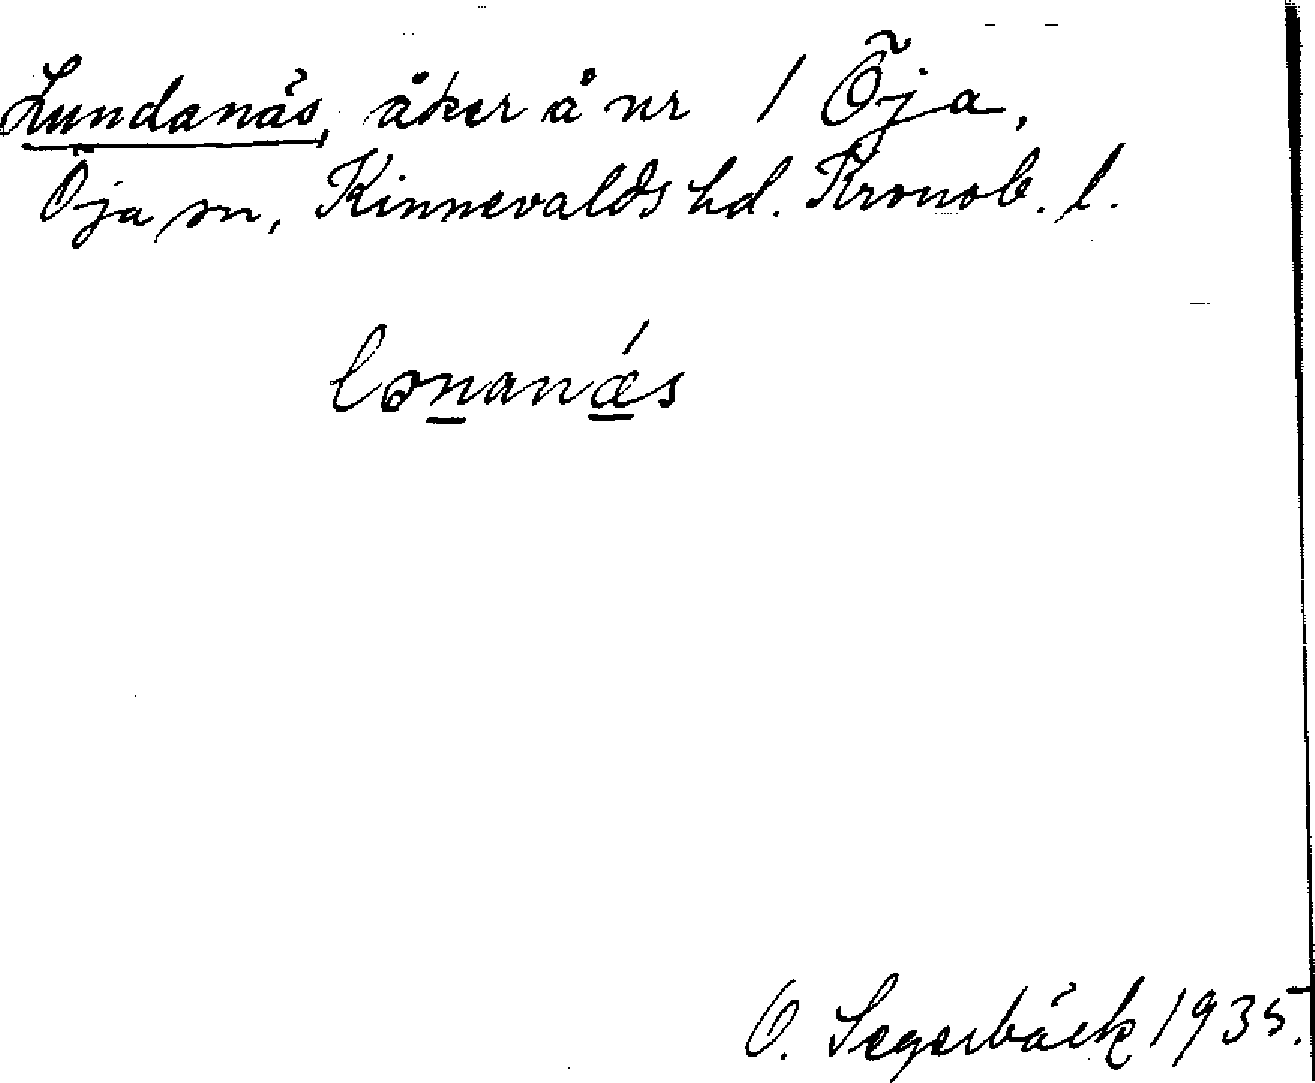 Lundanäs, åker å nr 1 Öja,
Öja sn, Kinnevalds hd. Kronob. l.
lɔnanǽs
O. Segerbäck 1935.